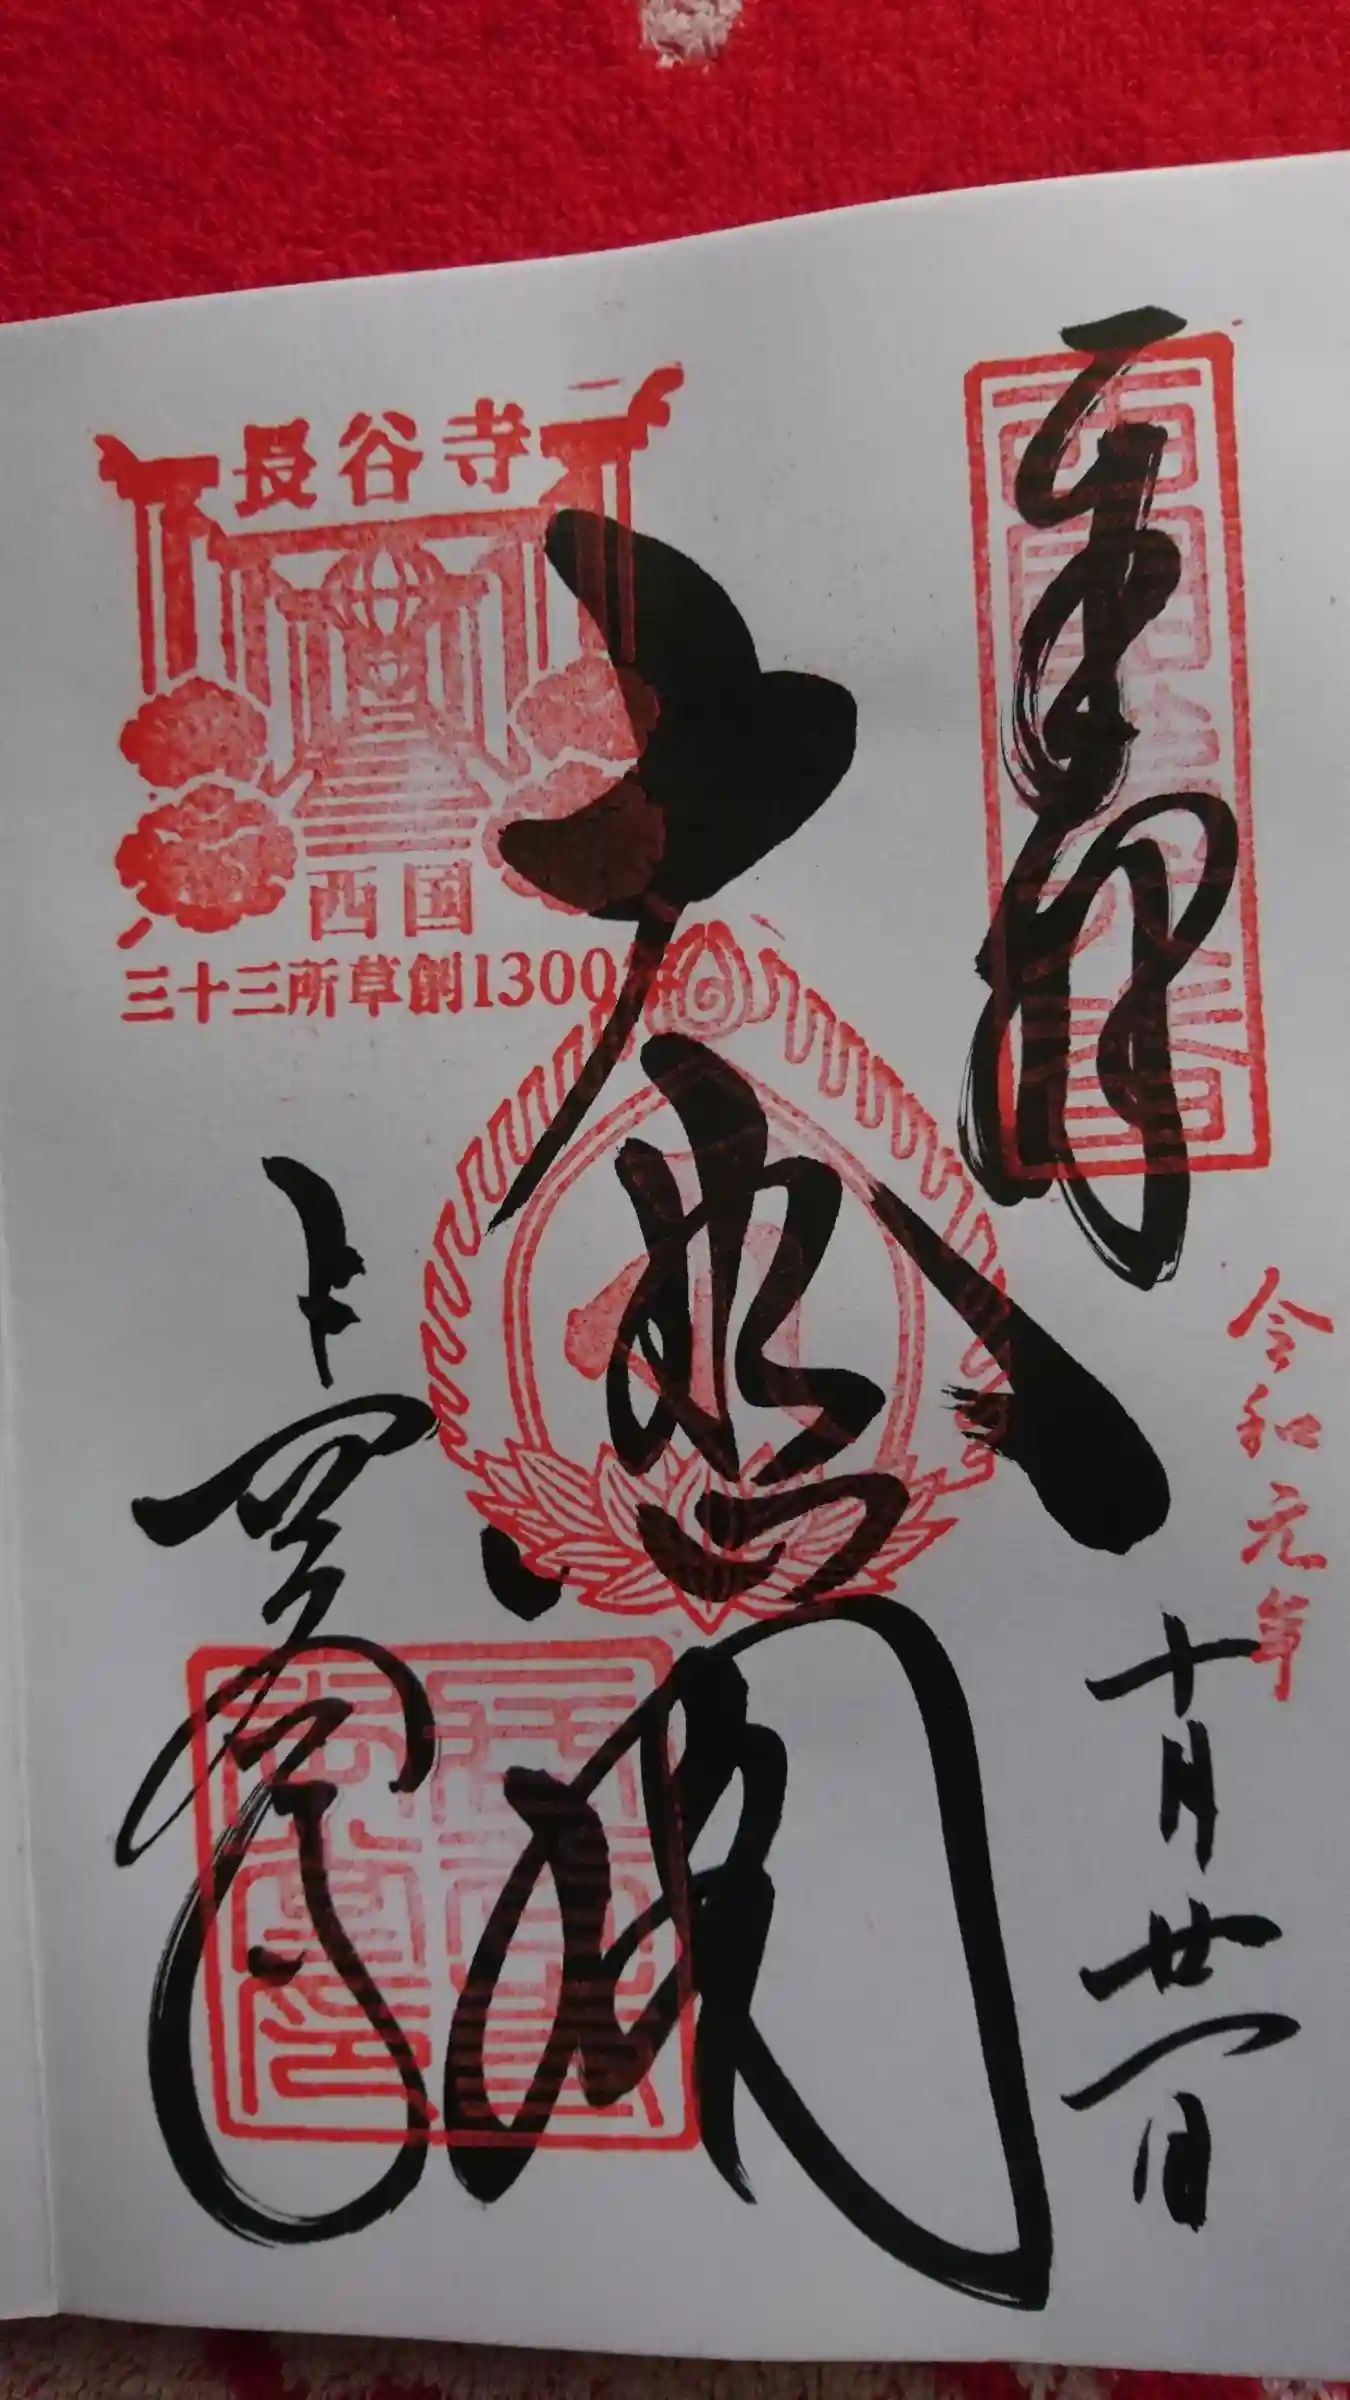 奉拝
西国第八番
令和元年
十月廿一日
大悲閣
長谷寺
西国
三十三所草創1300年
長谷寺